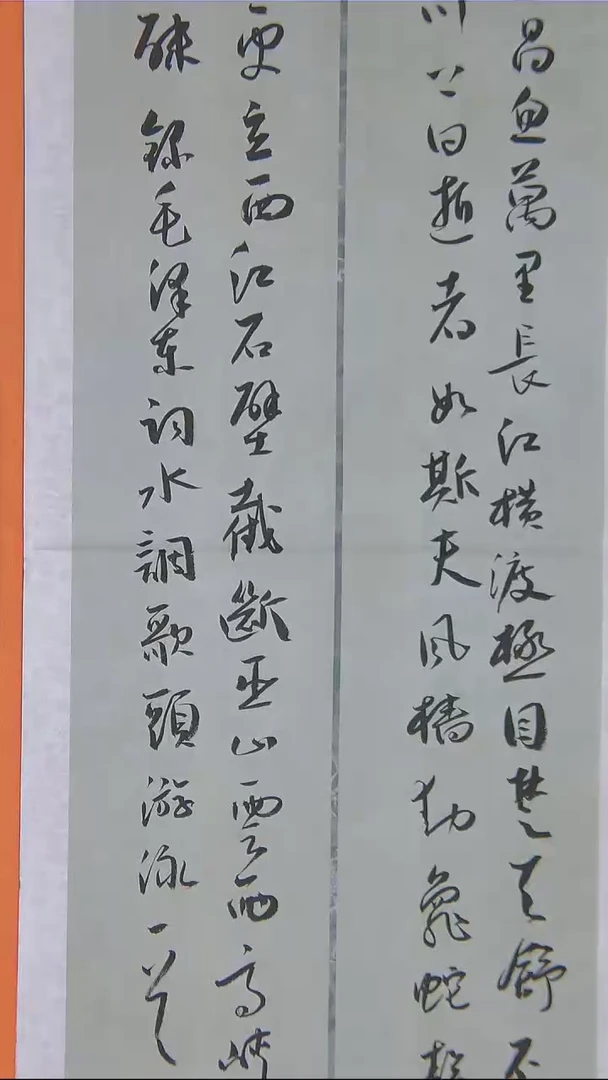 昌魚萬里長江横渡極目楚天舒不
川上曰逝者如斯夫風檣動龜蛇
更立西江石壁截斷巫山雲雨高峽
殊錄毛澤东詞水調歌頭游泳一首